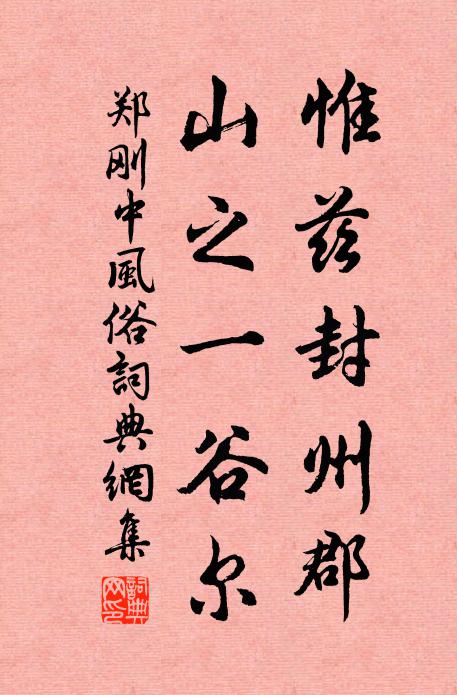 惟兹封州郡
山之一谷尔
郑刚中風俗詞典網集
詞典網印